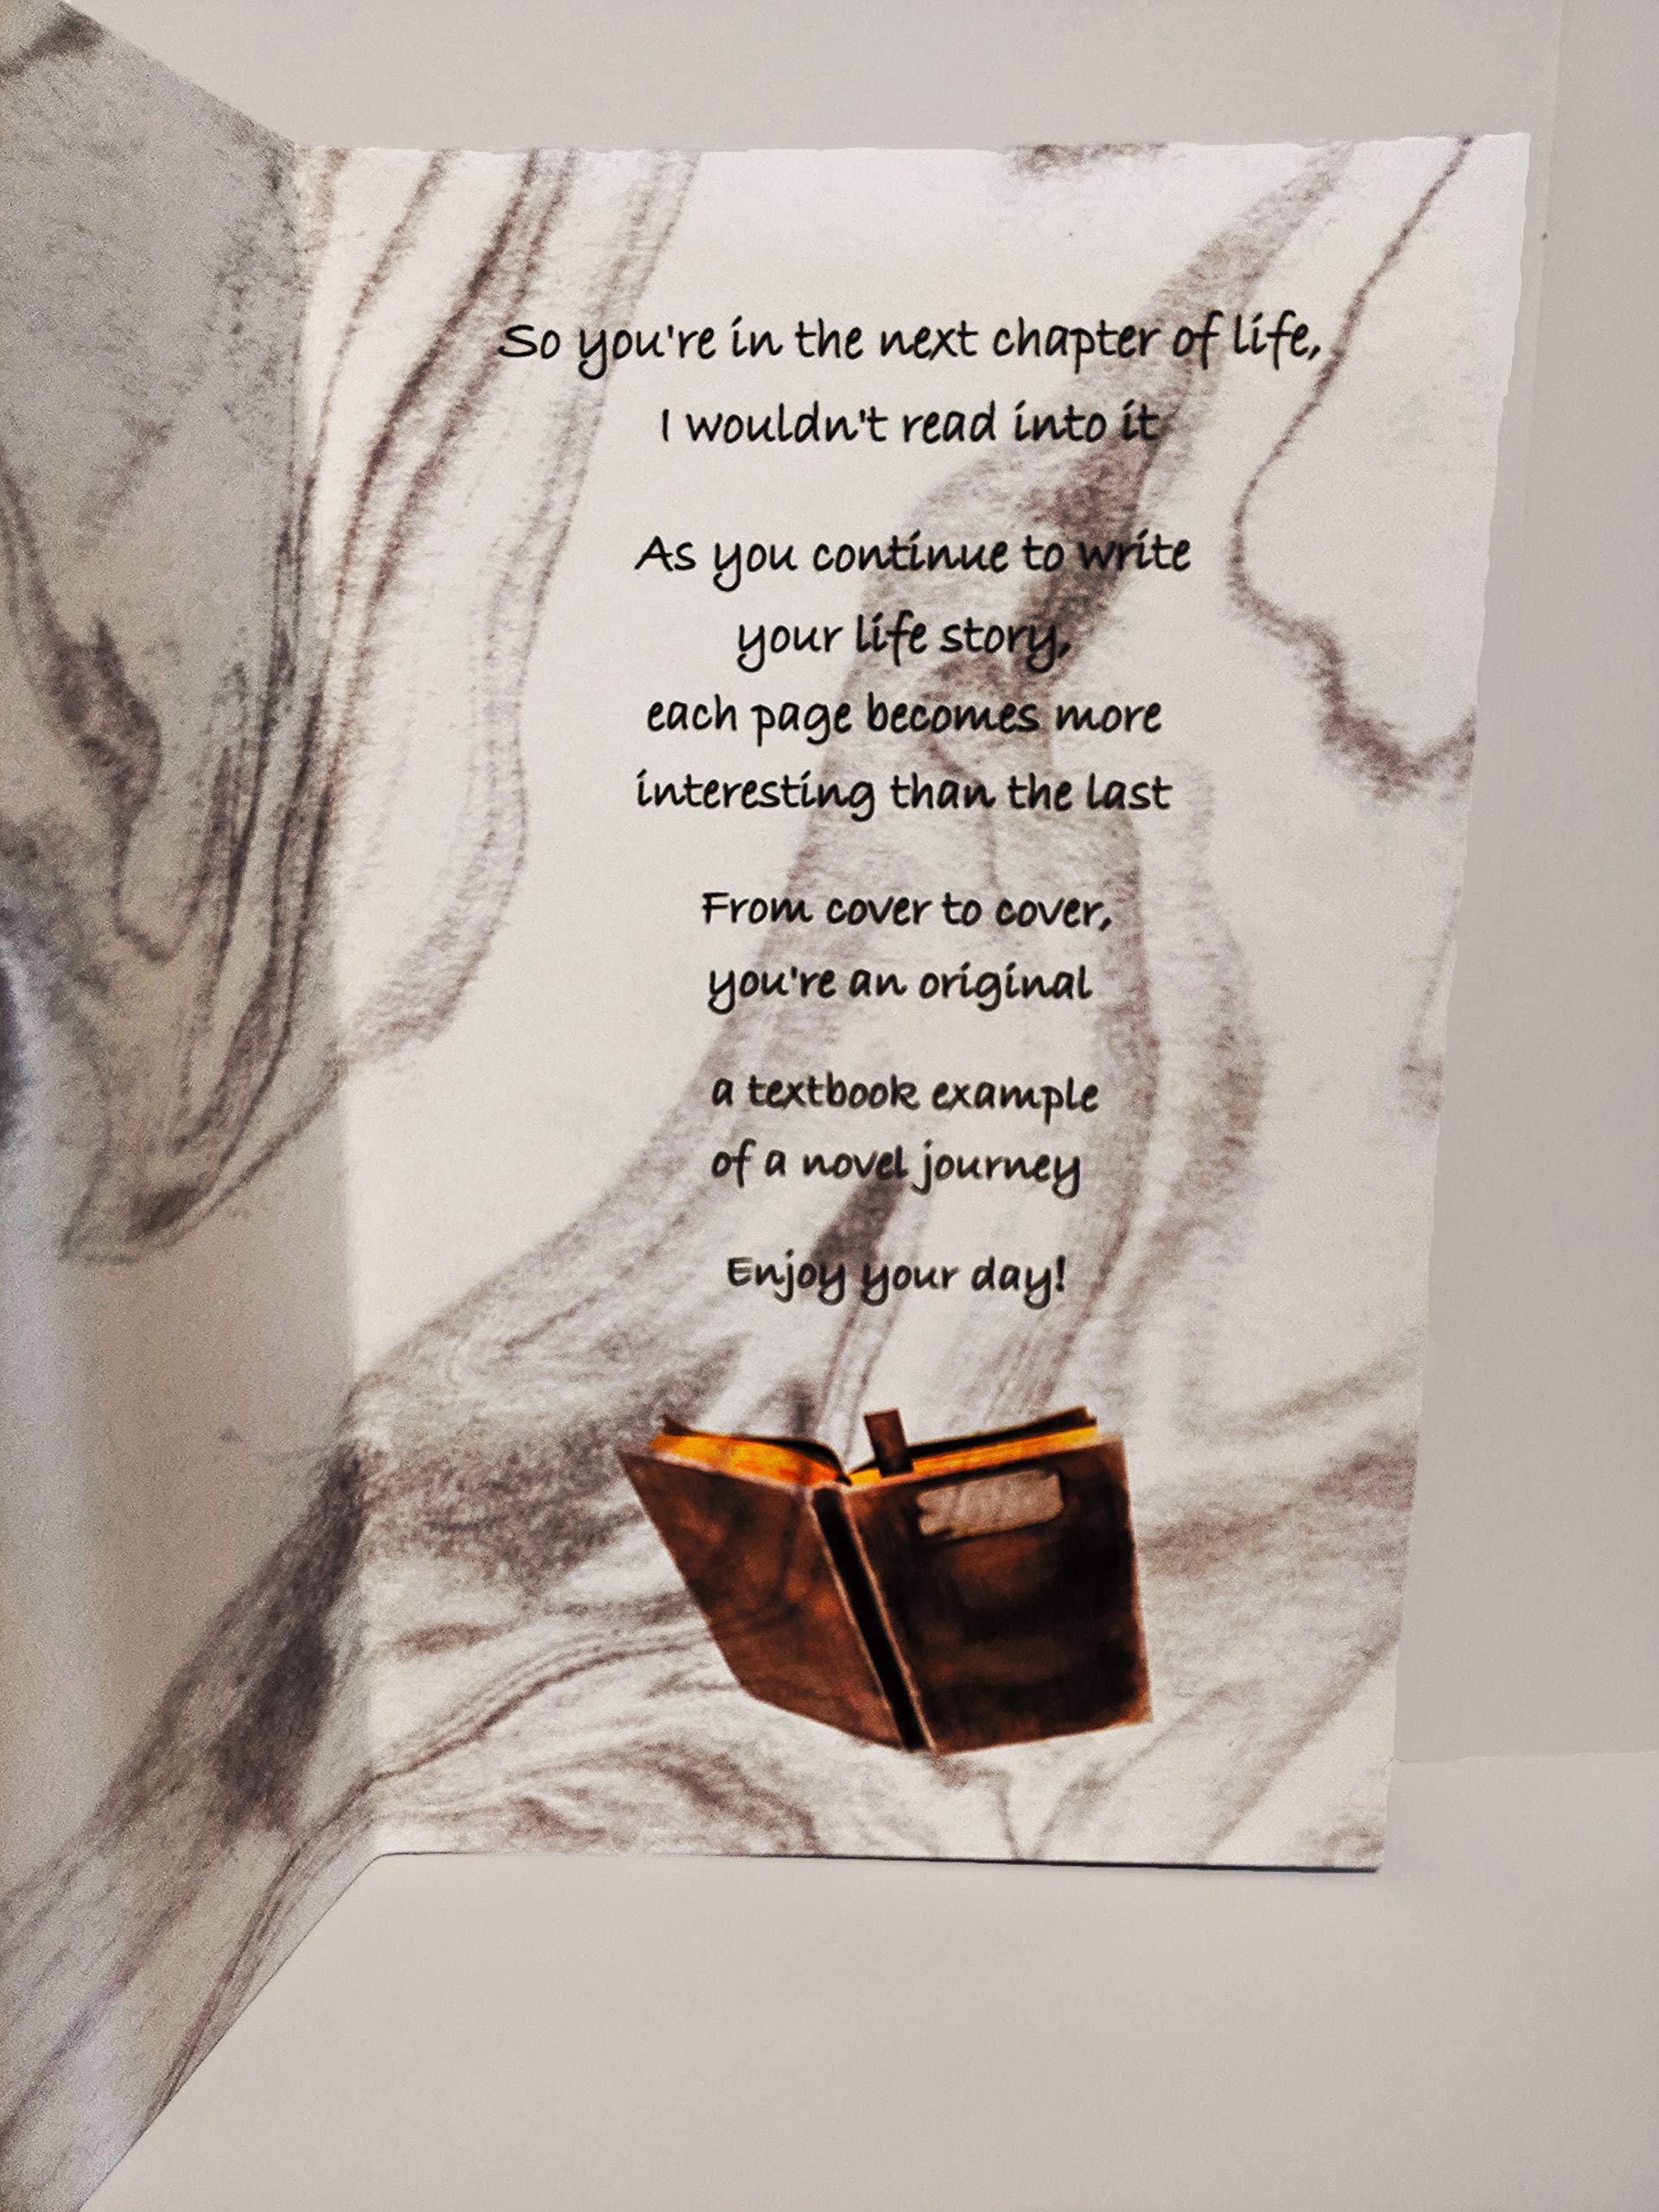 So you're in the next chapter of life,
I wouldn't read into it
As you continue to write
your life story,
each page becomes more
interesting than the last
From cover to cover,
you're an original
a textbook example
of a novel journey
Enjoy your day!